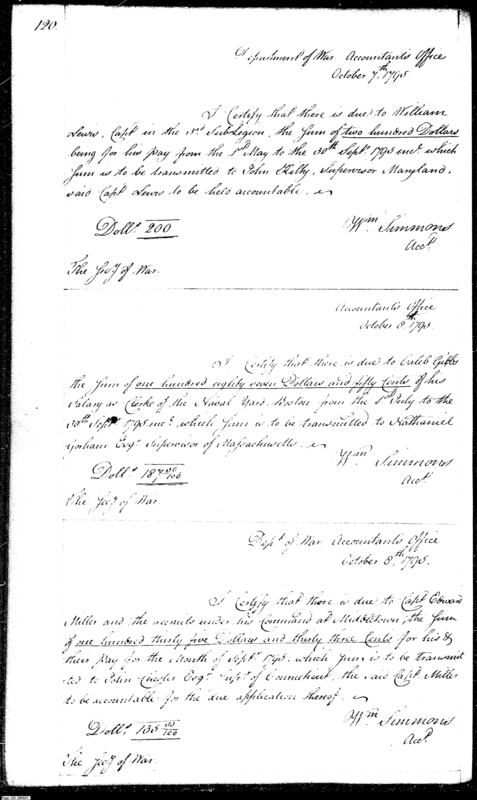 120
Department of War Accountants Office
October 7th 1795
I Certify that there is due to William
Lewis, Capt in the 3rd Sub Legion, the Sum of two hundred Dollars
being for his pay from the 1st May to the 30th Septr 1795 incl. which
Sum is to be transmitted to John Kilty, Supervisor Maryland,
said Capt Lewis to be held accountable.
Dolls 200
Wm Simmons
Acct
The Secy of War.
Accountants Office
October 8th 1795.
I Certify that there is due to Caleb Gibbs
the Sum of one hundred eighty seven Dollars and fifty Cents of his
Salary as Clerke of the Naval Yard Boston from the 1st July to the
30th Septr 1795 inc. which Sum is to be transmitted to Nathaniel
Gorham Esqr Supervisor of Massachusetts.
Dolls 187 50/100
Wm Simmons
Acct
The Secy of War.
Dept of War Accountants Office
October 8th 1795.
I Certify that there is due to Capt Edward
Miller and the recruits under his Command at Middletown, the Sum
of one hundred thirty five Dollars and thirty three Cents for his &
their pay for the Month of Septr 1795. which Sum is to be transmit
ted to John Esqr of Connecticut, the said Capt Miller
to be accountable for the due application thereof.
Dolls 135 33/100
Wm Simmons
Acct
The Secy of War.